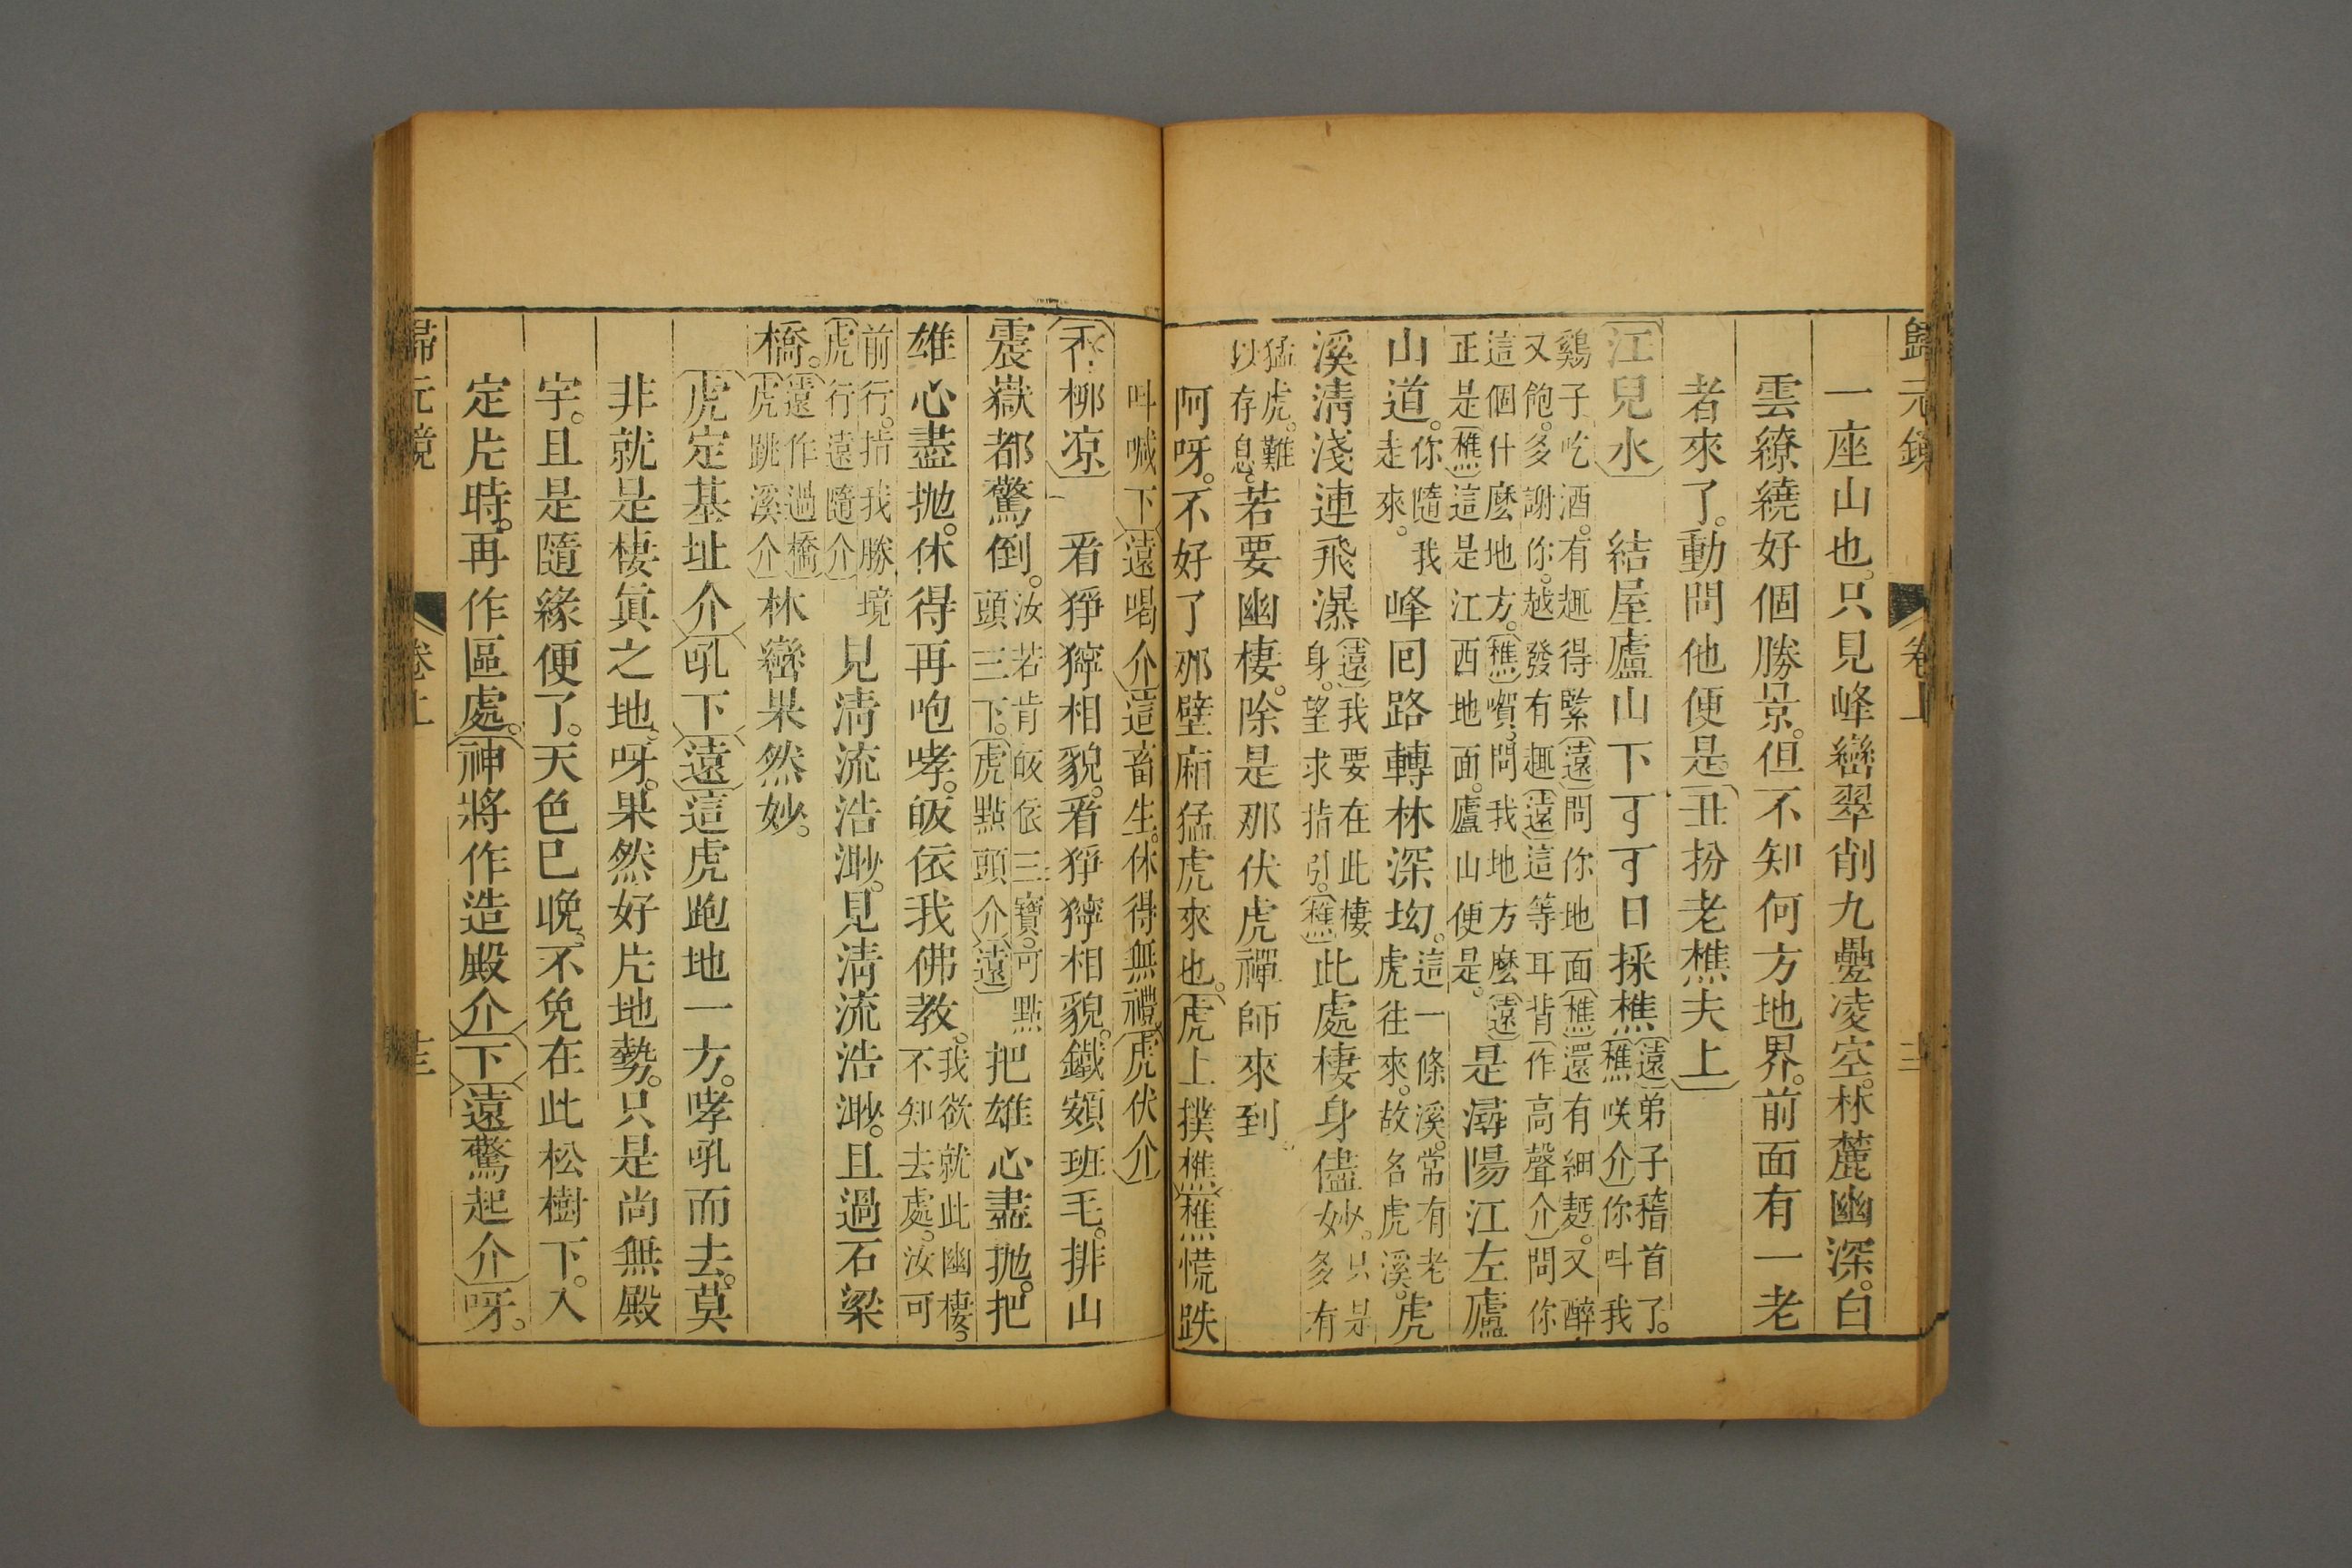 歸元鏡 卷上
一座山也。只見峰巒翠削九疊凌空。林麓幽深。白
雲繚繞好個勝景。但不知何方地界。前面有一老
者來了。動問他便是。〔丑扮老樵夫上〕
〔江兒水〕結屋廬山下可可日採樵〔遠〕弟子稽首了。〔樵咲介〕你呌我
鷄子吃酒。有趣得緊〔遠〕問你地面〔樵〕還有細麪。又醉
又飽。多謝你。越發有趣〔遠〕這等耳背〔作高聲介〕問你
這個什麽地方。〔樵〕嗄。問我地方麽〔遠〕
正是〔樵〕這是江西地面。廬山便是。是潯陽江左廬
山道。你隨我走來。峰囘路轉林深坳。這一條溪。常有老虎往來。故名虎溪。虎
溪淸淺連飛瀑〔遠〕我要在此棲身。望求指引。〔樵〕此處棲身儘妙。只是多有
猛虎。難以存息。若要幽棲。除是那伏虎禪師來到。
阿呀。不好了那壁廂猛虎來也。〔虎上撲樵〕〔樵慌跌
呌喊下〕〔遠喝介〕這畜生。休得無禮〔虎伏介〕
看猙獰相貌。看猙獰相貌。鐵額班毛。排山
震嶽都驚倒。汝若肯皈依三寶。可點頭三下。〔虎點頭介〕〔遠〕把雄心盡抛。把
雄心盡抛。休得再咆哮。皈依我佛教。我欲就此幽棲。不知去處。汝可
前行。指我勝境〔虎行遠隨介〕見淸流浩渺。見淸流浩渺。且過石梁
橋。〔遠作過橋〕〔虎跳溪介〕林巒果然妙。
〔虎定基址介〕〔吼下〕〔遠〕這虎跑地一方。哮吼而去。莫
非就是棲眞之地。呀。果然好片地勢。只是尚無殿
宇。且是隨緣便了。天色已晩。不免在此松樹下。入
定片時。再作區處。〔神將作造殿介〕〔下〕〔遠驚起介〕呀。
歸元鏡 卷上